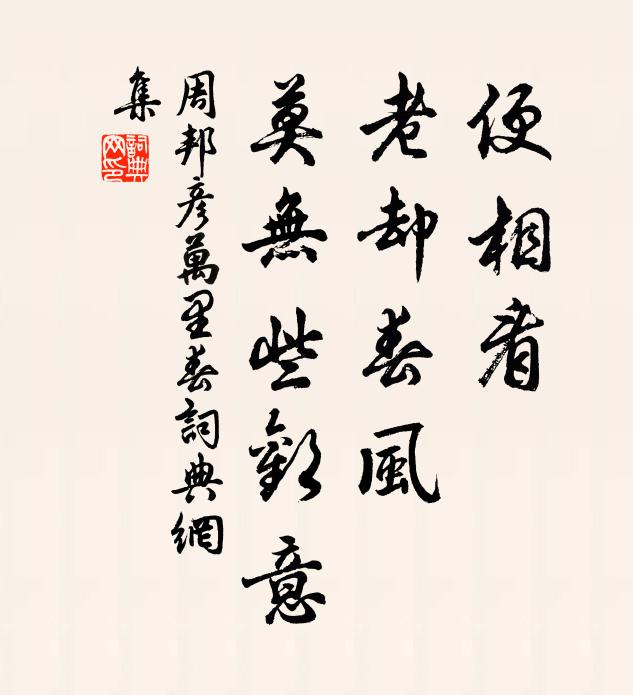 便相看
老却春風
莫無些歡意
周邦彥萬里春詞典網
集
詞典
网印